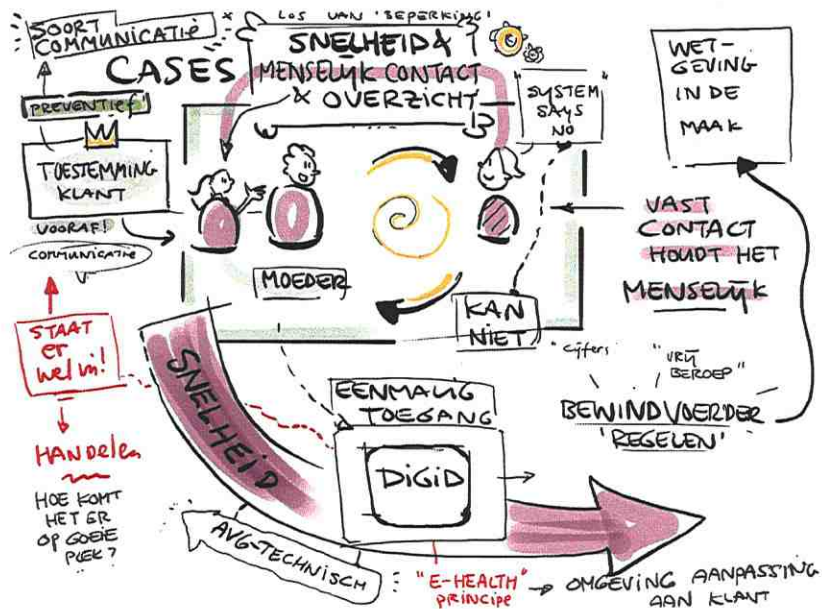 SOORT
COMMUNICATIE
LOS VAN 'BEPERKING'
CASES
SNELHEID &
MENSELIJK CONTACT
& OVERZICHT
"SYSTEM
SAYS
NO
WET-
GEVING
IN DE
MAAK
PREVENTIEF
TOESTEMMING
KLANT
VOORAF!
COMMUNICATIE
MOEDER
KAN
NIET
VAST
CONTACT
HOUDT HET
MENSELIJK
STAAT
er
wel in!
HANDELEN
HOE KOMT
HET ER
OP GOEIE
PLEK?
SNELHEID
EENMALIG
TOEGANG
DIGID
"cijfers"
"VRIJ
BEROEP"
BEWINDVOERDER
'REGELEN'
AVG-TECHNISCH
"E-HEALTH"
PRINCIPE
OMGEVING AANPASSING
AAN KLANT